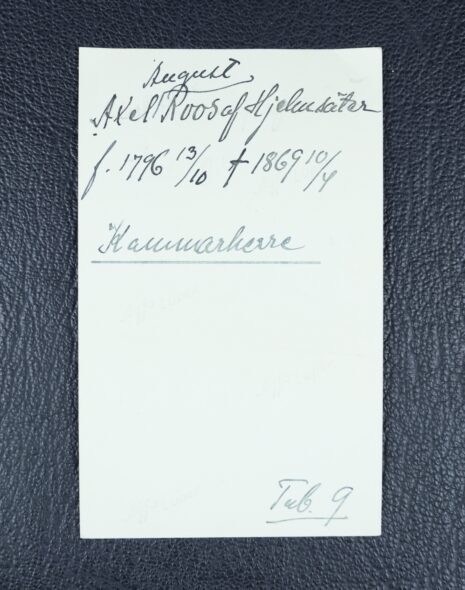 August
Axel Roos af Hjelmsäter
f. 1796 13/10 † 1869 10/4
Kammarherre
Tab. 9